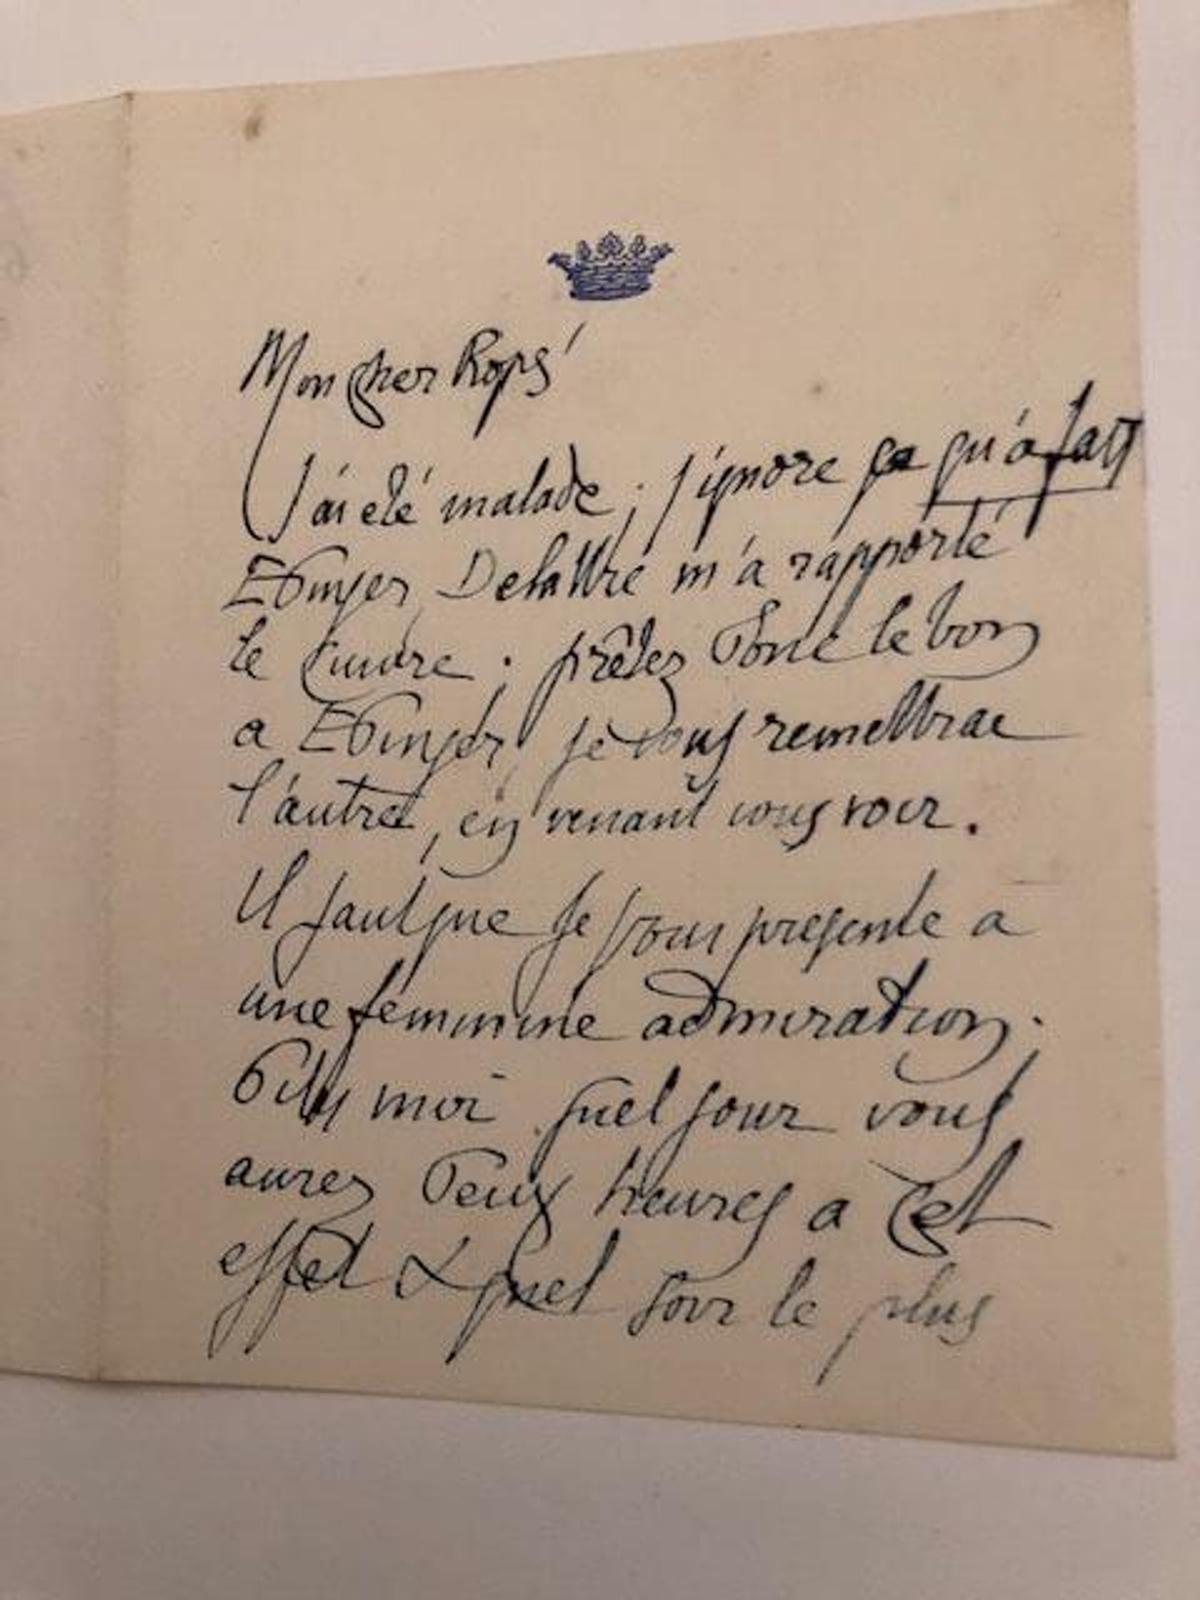 Mon cher Rops
J'ai été malade ; j'ignore ça qu'a fait
Edinger, Delattre m'a rapporté
le cuivre ; prêtez donc le bon
a Edinger, je vous remettrai
l'autre, en venant vous voir.
Il faut que je vous présente a
une féminine admiration.
Dites moi quel jour vous
aurez deux heures a cet
effet & quel jour le plus